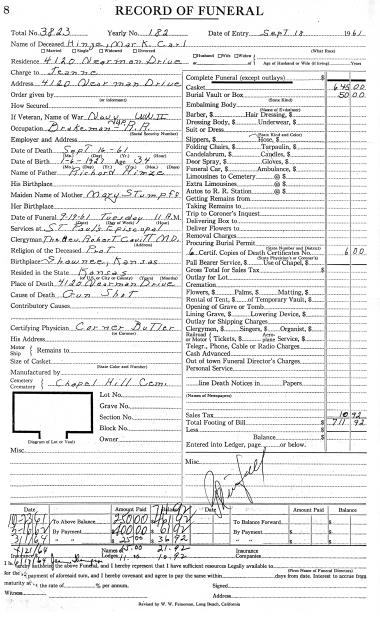 8
RECORD OF FUNERAL
Total No. 3823 Yearly No. 182 Date of Entry Sept 18 1961
Name of Deceased Hinze, Mark Carl
Married Single Widowed Divorced Husband Wife Widow (What Race)
Residence 4120 Nearman Drive of Age of Husband or Wife (if living) Years
Charge to Jeanne
Address 4120 Nearman Drive
Order given by
(or informant)
How Secured
If Veteran, Name of War Navy WW II
Occupation Brakeman - R.R.
(Social Security Number)
Employer
Date of Death Sept 16-61
Date of Birth 1-6-1927 Age 34
Name of Father Richard Hinze
His Birthplace
Maiden Name of Mother Mary Stumpff
Her Birthplace
Date of Funeral 9-19-61 Tuesday 11 A.M.
Services at St Pauls Episcopal
Clergyman The Rev. Robert Cavitt M.D.
Religion of the Deceased Prot
Birthplace Shawnee, Kansas
Resided in the State Kansas
Place of Death 4120 Nearman Drive
Cause of Death Gun Shot
Contributory Causes
Certifying Physician Corner Butler
(or Coroner)
His Address
Motor Ship Remains to
Size of Casket
(State Color and Number)
Manufactured by
Cemetery Crematory Chapel Hill Cem.
Lot No.
Grave No.
Section No.
Block No.
Owner
Diagram of Lot or Vault
Misc.
Complete Funeral (except outlays) $
Casket 645 00
Burial Vault or Box 50 00
(State Kind)
Embalming Body
(Name of Embalmer)
Barber, $ Hair Dressing, $
Dressing Body, $ Underwear, $
Suit or Dress
(State Kind and Color)
Slippers, $ Hose, $
Folding Chairs, $ Tarpaulin, $
Candelabrum, $ Candles, $
Door Spray, $ Gloves, $
Funeral Car, $ Ambulance, $
Limousines to Cemetery @ $
Extra Limousines @ $
Autos to R. R. Station @ $
Getting Remains from
Taking Remains to
Trip to Coroner's Inquest
Delivering Box to
Deliver Flowers to
Removal Charges
Procuring Burial Permit
(State Number and District)
6 Certif. Copies of Death Certificates No. 6 00
(State Physician's or Coroner's)
Pall Bearer Service, $ Use of Chapel, $
Gross Total for Sales Tax $
Outlay for Lot
Cremation
Flowers, $ Palms, $ Matting, $
Rental of Tent, $ of Temporary Vault, $
Opening of Grave or Tomb
Lining Grave, $ Lowering Device, $
Outlay for Shipping Charges
Clergyman, $ Singers, $ Organist, $
Railroad or Motor Tickets, $ Aeroplane Service, $
Telegr., Phone, Cable or Radio Charges
Cash Advanced
Out of town Funeral Director's Charges
Personal Service
line Death Notices in Papers
(Names of Newspapers)
Sales Tax 10 92
Total Footing of Bill $ 711 92
Less
Balance $
Entered into Ledger, page or below.
Misc.
Date Amount Paid Balance Date Amount Paid Balance
To Above Balance 250.00 461 92 To Balance Forward
By Payment 400.00 61 92 By Payment
3/1/64 " " 25.00 36 92
4/21/64 Names of Lodges 15.00 21.92 Insurance Companies
11.00 10.92
authorize the above Funeral, and I hereby represent that I have sufficient resources Legally available to
(Firm Name of Funeral Directors)
for the payment of aforesaid sum, and I hereby covenant and agree to pay the same within days from date. Interest to accrue from
maturity at the rate of % per annum. Signed
Witness Address
Revised by W. W. Fainerson, Long Beach, California